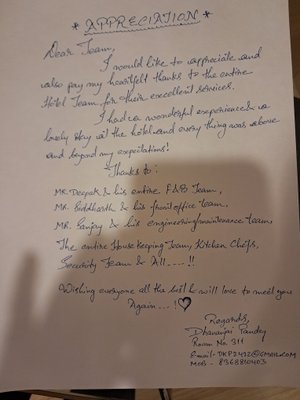 * APPRECIATION *
Dear Team,
I would like to appreciate and
also pay my heartfelt thanks to the entire
Hotel Team for their excellent services.
I had a wonderful experience & a
lovely stay at the hotel and every thing was above
and beyond my expectations!
Thanks to:
MR. Deepak & his entire F&B Team,
MR. Siddharth & his front office team,
MR. Sanjay & his engineering/maintenance team,
The entire House keeping Team, Kitchen Chefs,
Security Team & All....!!
Wishing everyone all the best & will love to meet you
Again...!
Regards,
Dhananjai Pandey
Room No. 311
E-mail- DKP2422@GMAIL.COM
MOB- 8368810403